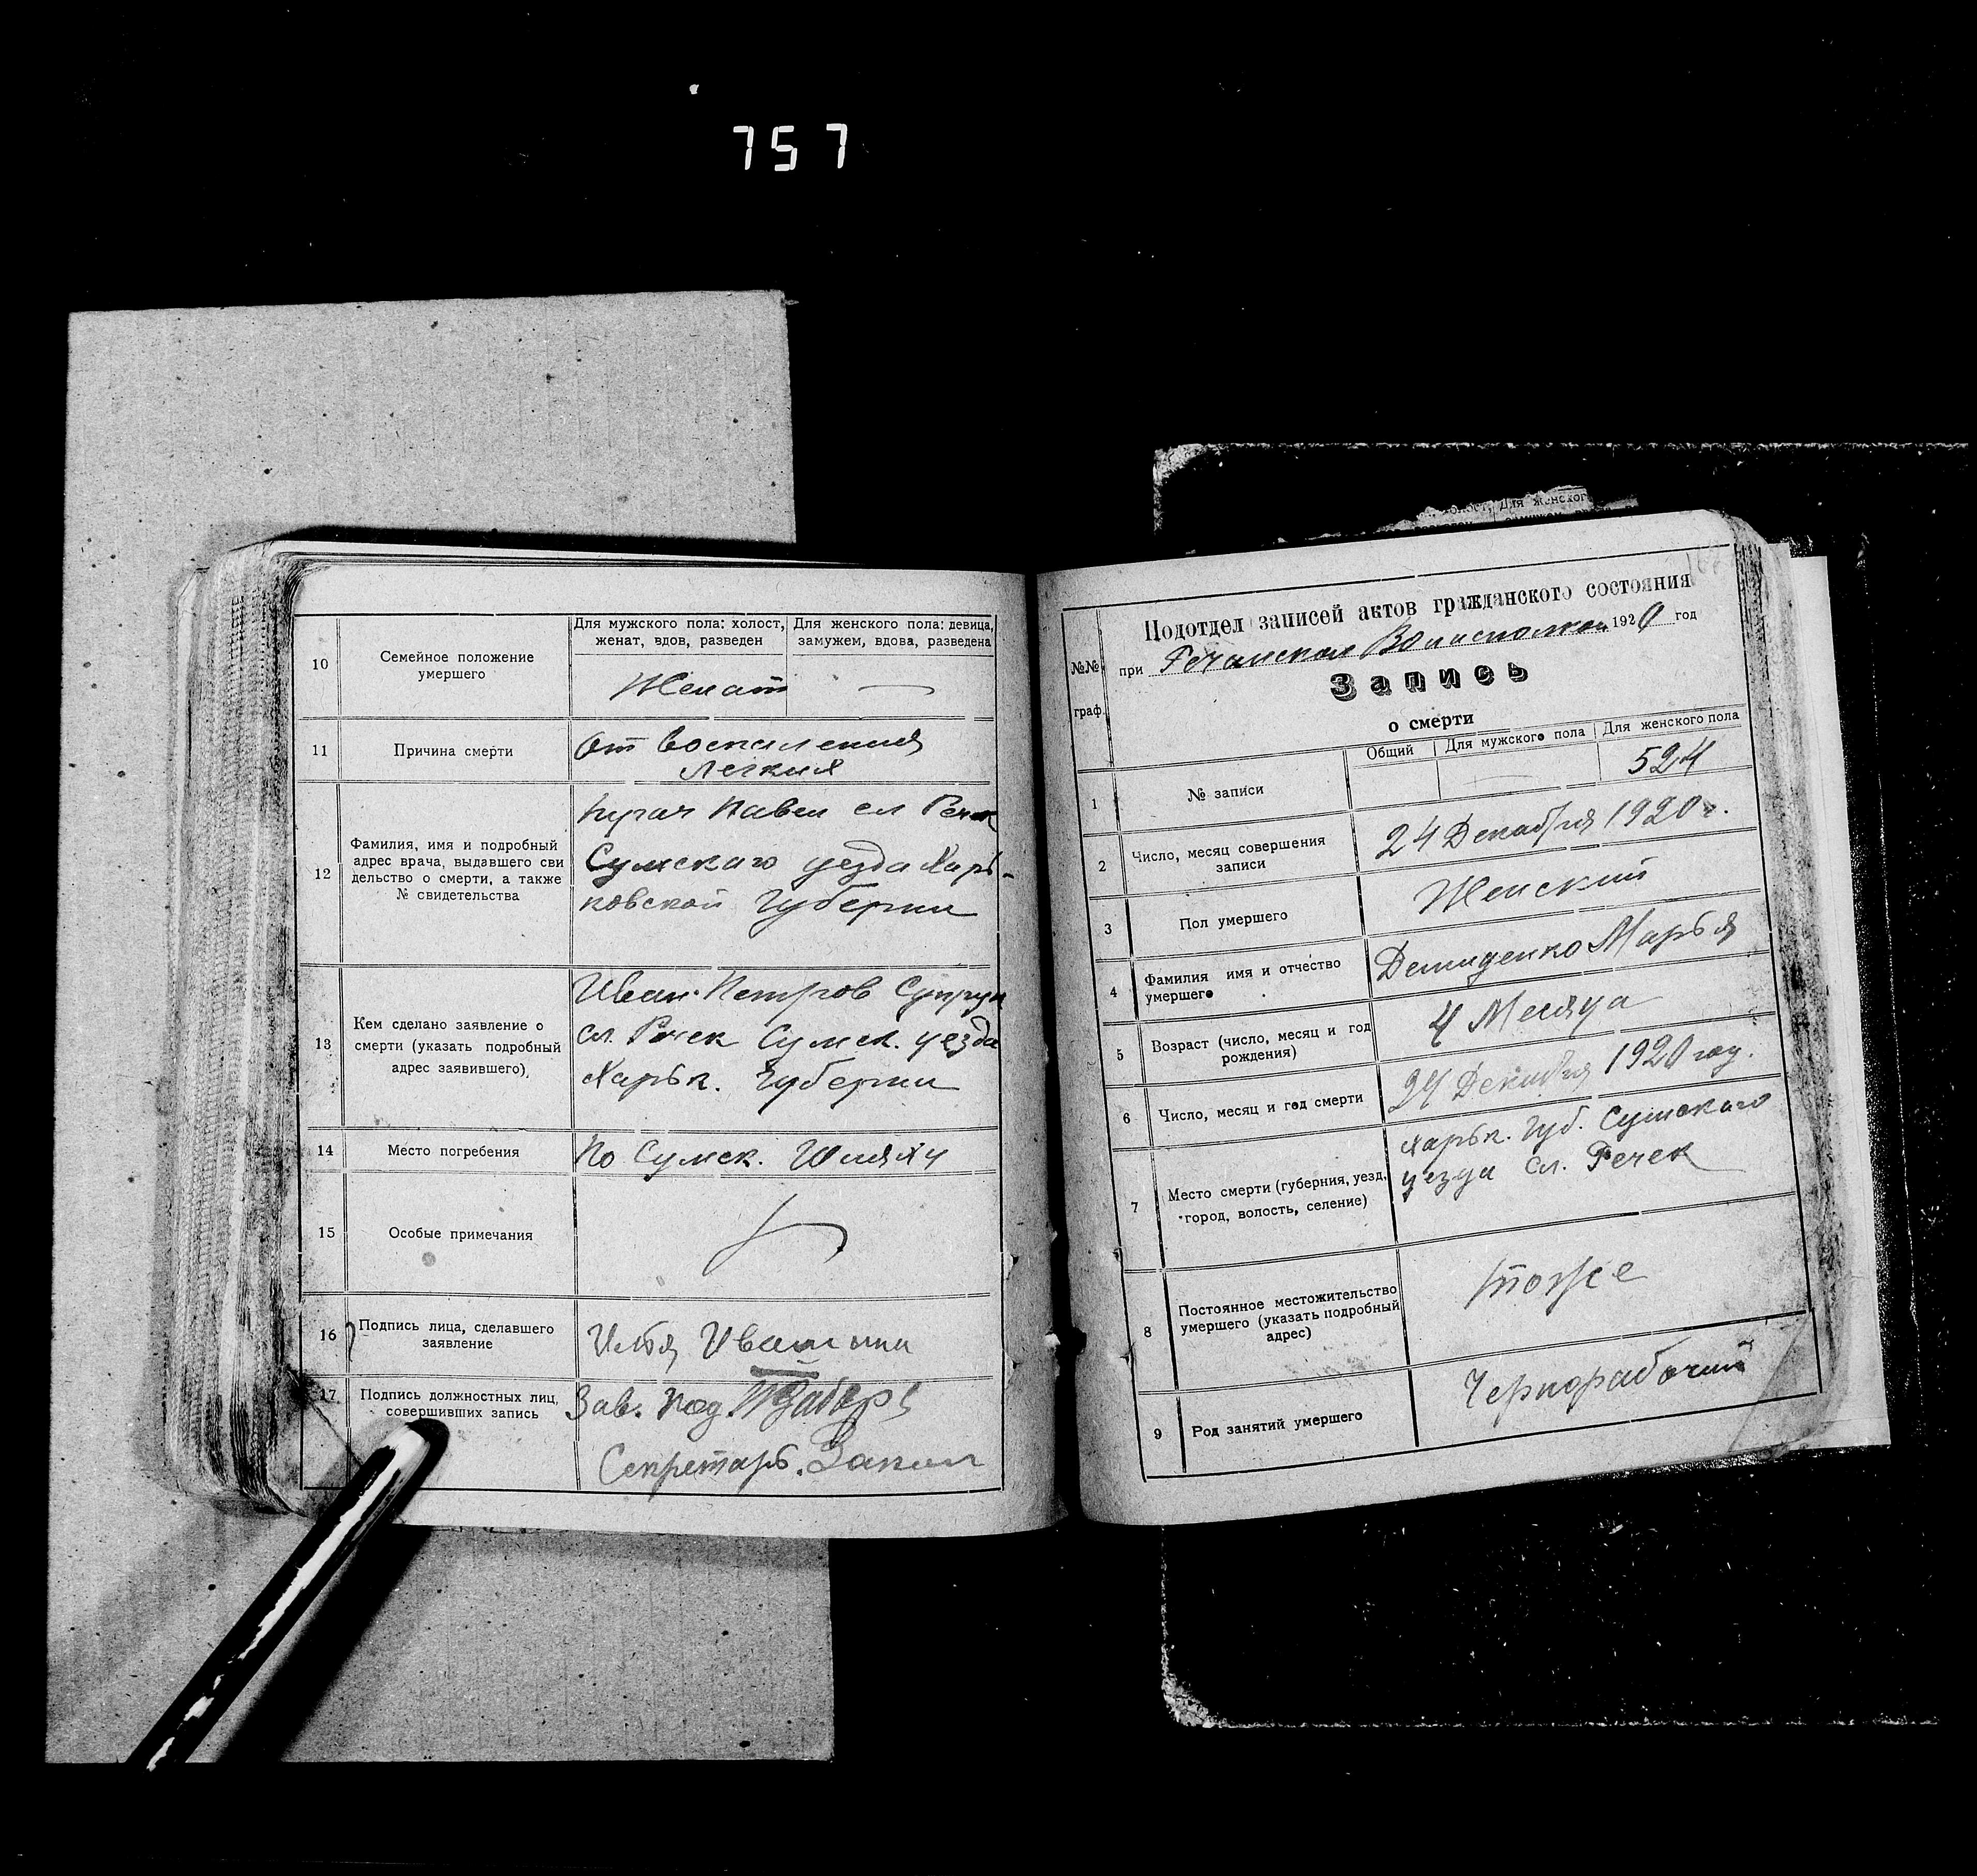 757
10
Семейное положение
умершего
Для мужского пола: холост,
женат, вдов, разведен
Для женского пола: девица,
замужем, вдова, разведена
Женат
—
11
Причина смерти
От воспаления
легких
12
Фамилия, имя и подробный
адрес врача, выдавшего сви
дельство о смерти, а также
№ свидетельства
Павел сл Речек
Сумскаго уезда Харь-
ковской Губернии
13
Кем сделано заявление о
смерти (указать подробный
адрес заявившего)
Иван Петров Супрун
сл. Речек Сумск. уезда
Харьк. Губернии
14
Место погребения
По Сумск. Шляху
15
Особые примечания
16
Подпись лица, сделавшего
заявление
Илья
17
Подпись должностных лиц,
совершивших запись
Зав. Под.
Секретарь.
Для женского
№№
граф.
Подотдел записей актов гражданского состояния
при Речанском Волисполком 1920 год
Запись
о смерти
Общий
Для мужского пола
Для женского пола
1
№ записи
524
2
Число, месяц совершения
записи
24 Декабря 1920 г.
3
Пол умершего
Женский
4
Фамилия имя и отчество
умершего
Демиденко Марья
5
Возраст (число, месяц и год
рождения)
4 Месяца
6
Число, месяц и год смерти
24 Декабря 1920 году.
7
Место смерти (губерния, уезд,
город, волость, селение)
Харьк. Губ. Сумскаго
уезда сл. Речек
8
Постоянное местожительство
умершего (указать подробный
адрес)
тоже
9
Род занятий умершего
Чернорабочий